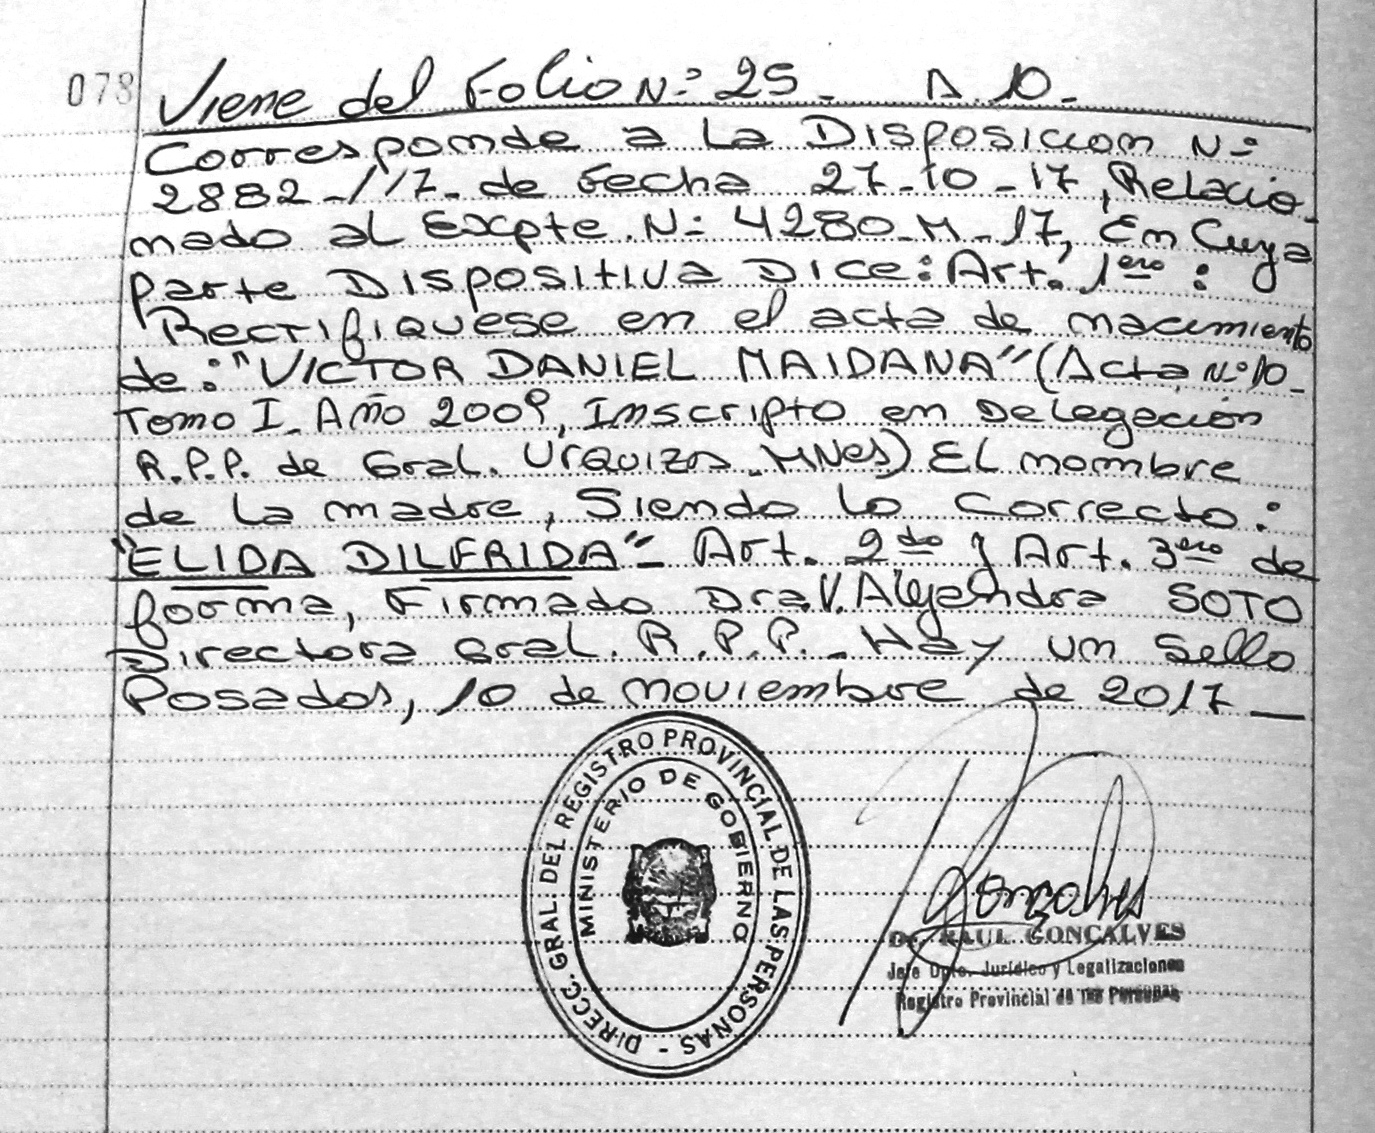 078
Viene del Folio N: 25 - A. 10.-
Corresponde a la Disposicion N:
2882-/17- de Fecha 27-10-17, Relacio-
nado al Expte. N: 4280-M-17, En Cuya
parte Dispositiva Dice: Art. 1ero:
Rectifiquese en el acta de nacimiento
de: "VICTOR DANIEL MAIDANA" (Acta N:10-
Tomo I- Año 2009, Inscripto en Delegación
R.P.P. de Gral. Urquiza - MNes) El nombre
de la madre, Siendo lo Correcto:
"ELIDA DILFRIDA" - Art. 2do y Art. 3ero de
forma, Firmado Dra. V. Alejandra SOTO
Directora Gral. R.P.P. - Hay un Sello
Posadas, 10 de noviembre de 2017 —
DIRECC. GRAL. DEL REGISTRO PROVINCIAL DE LAS PERSONAS -
MINISTERIO DE GOBIERNO
Gonçalves
Dr. RAUL GONCALVES
Jefe Dpto. Jurídico y Legalizaciones
Registro Provincial de las Personas